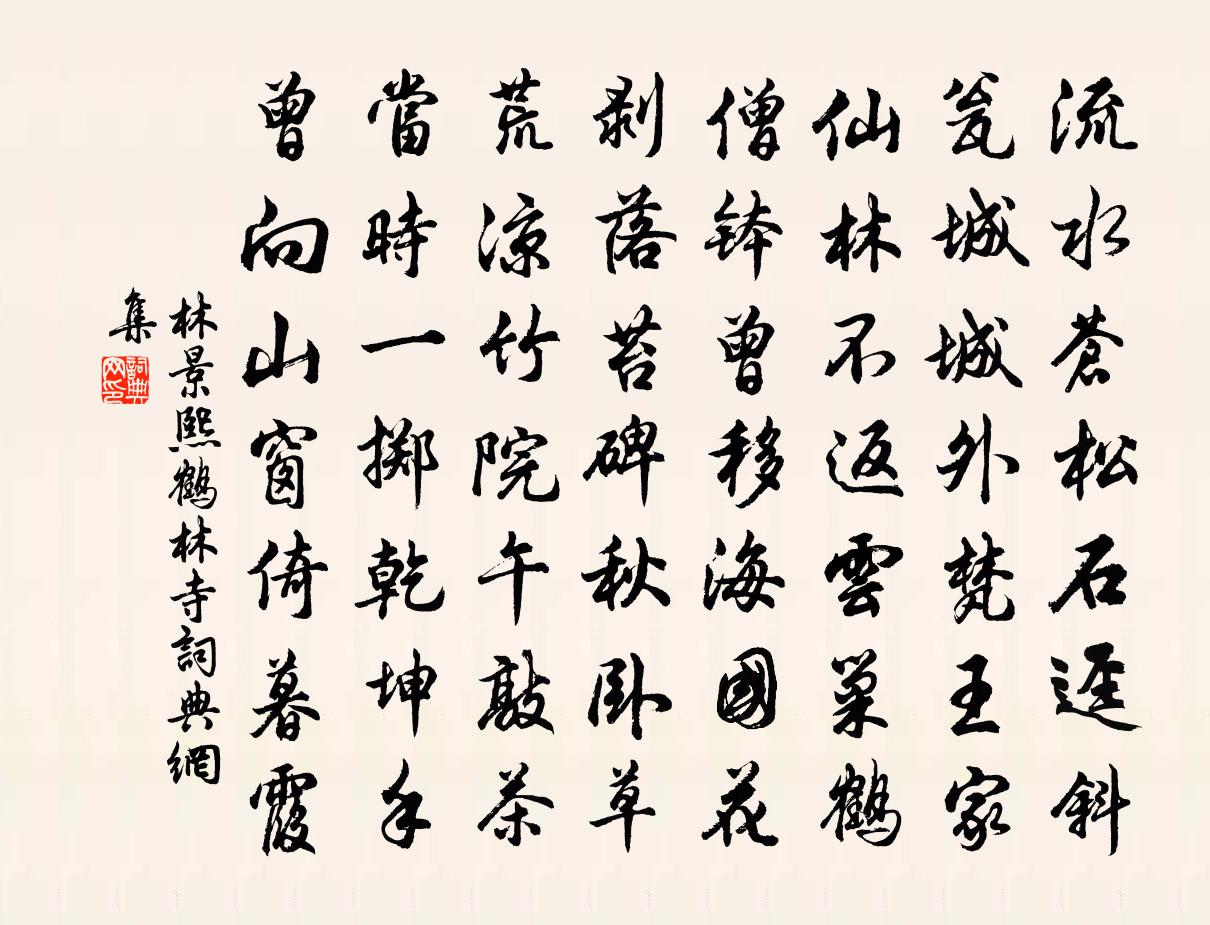 流水蒼松石逕斜
瓮城城外梵王家
仙林不返雲巢鶴
僧鉢曾移海國花
剥落苔碑秋卧草
荒涼竹院午敲茶
當時一擲乾坤手
曾向山窗倚暮霞
林景熙鶴林寺詞典網
集
詞典网印